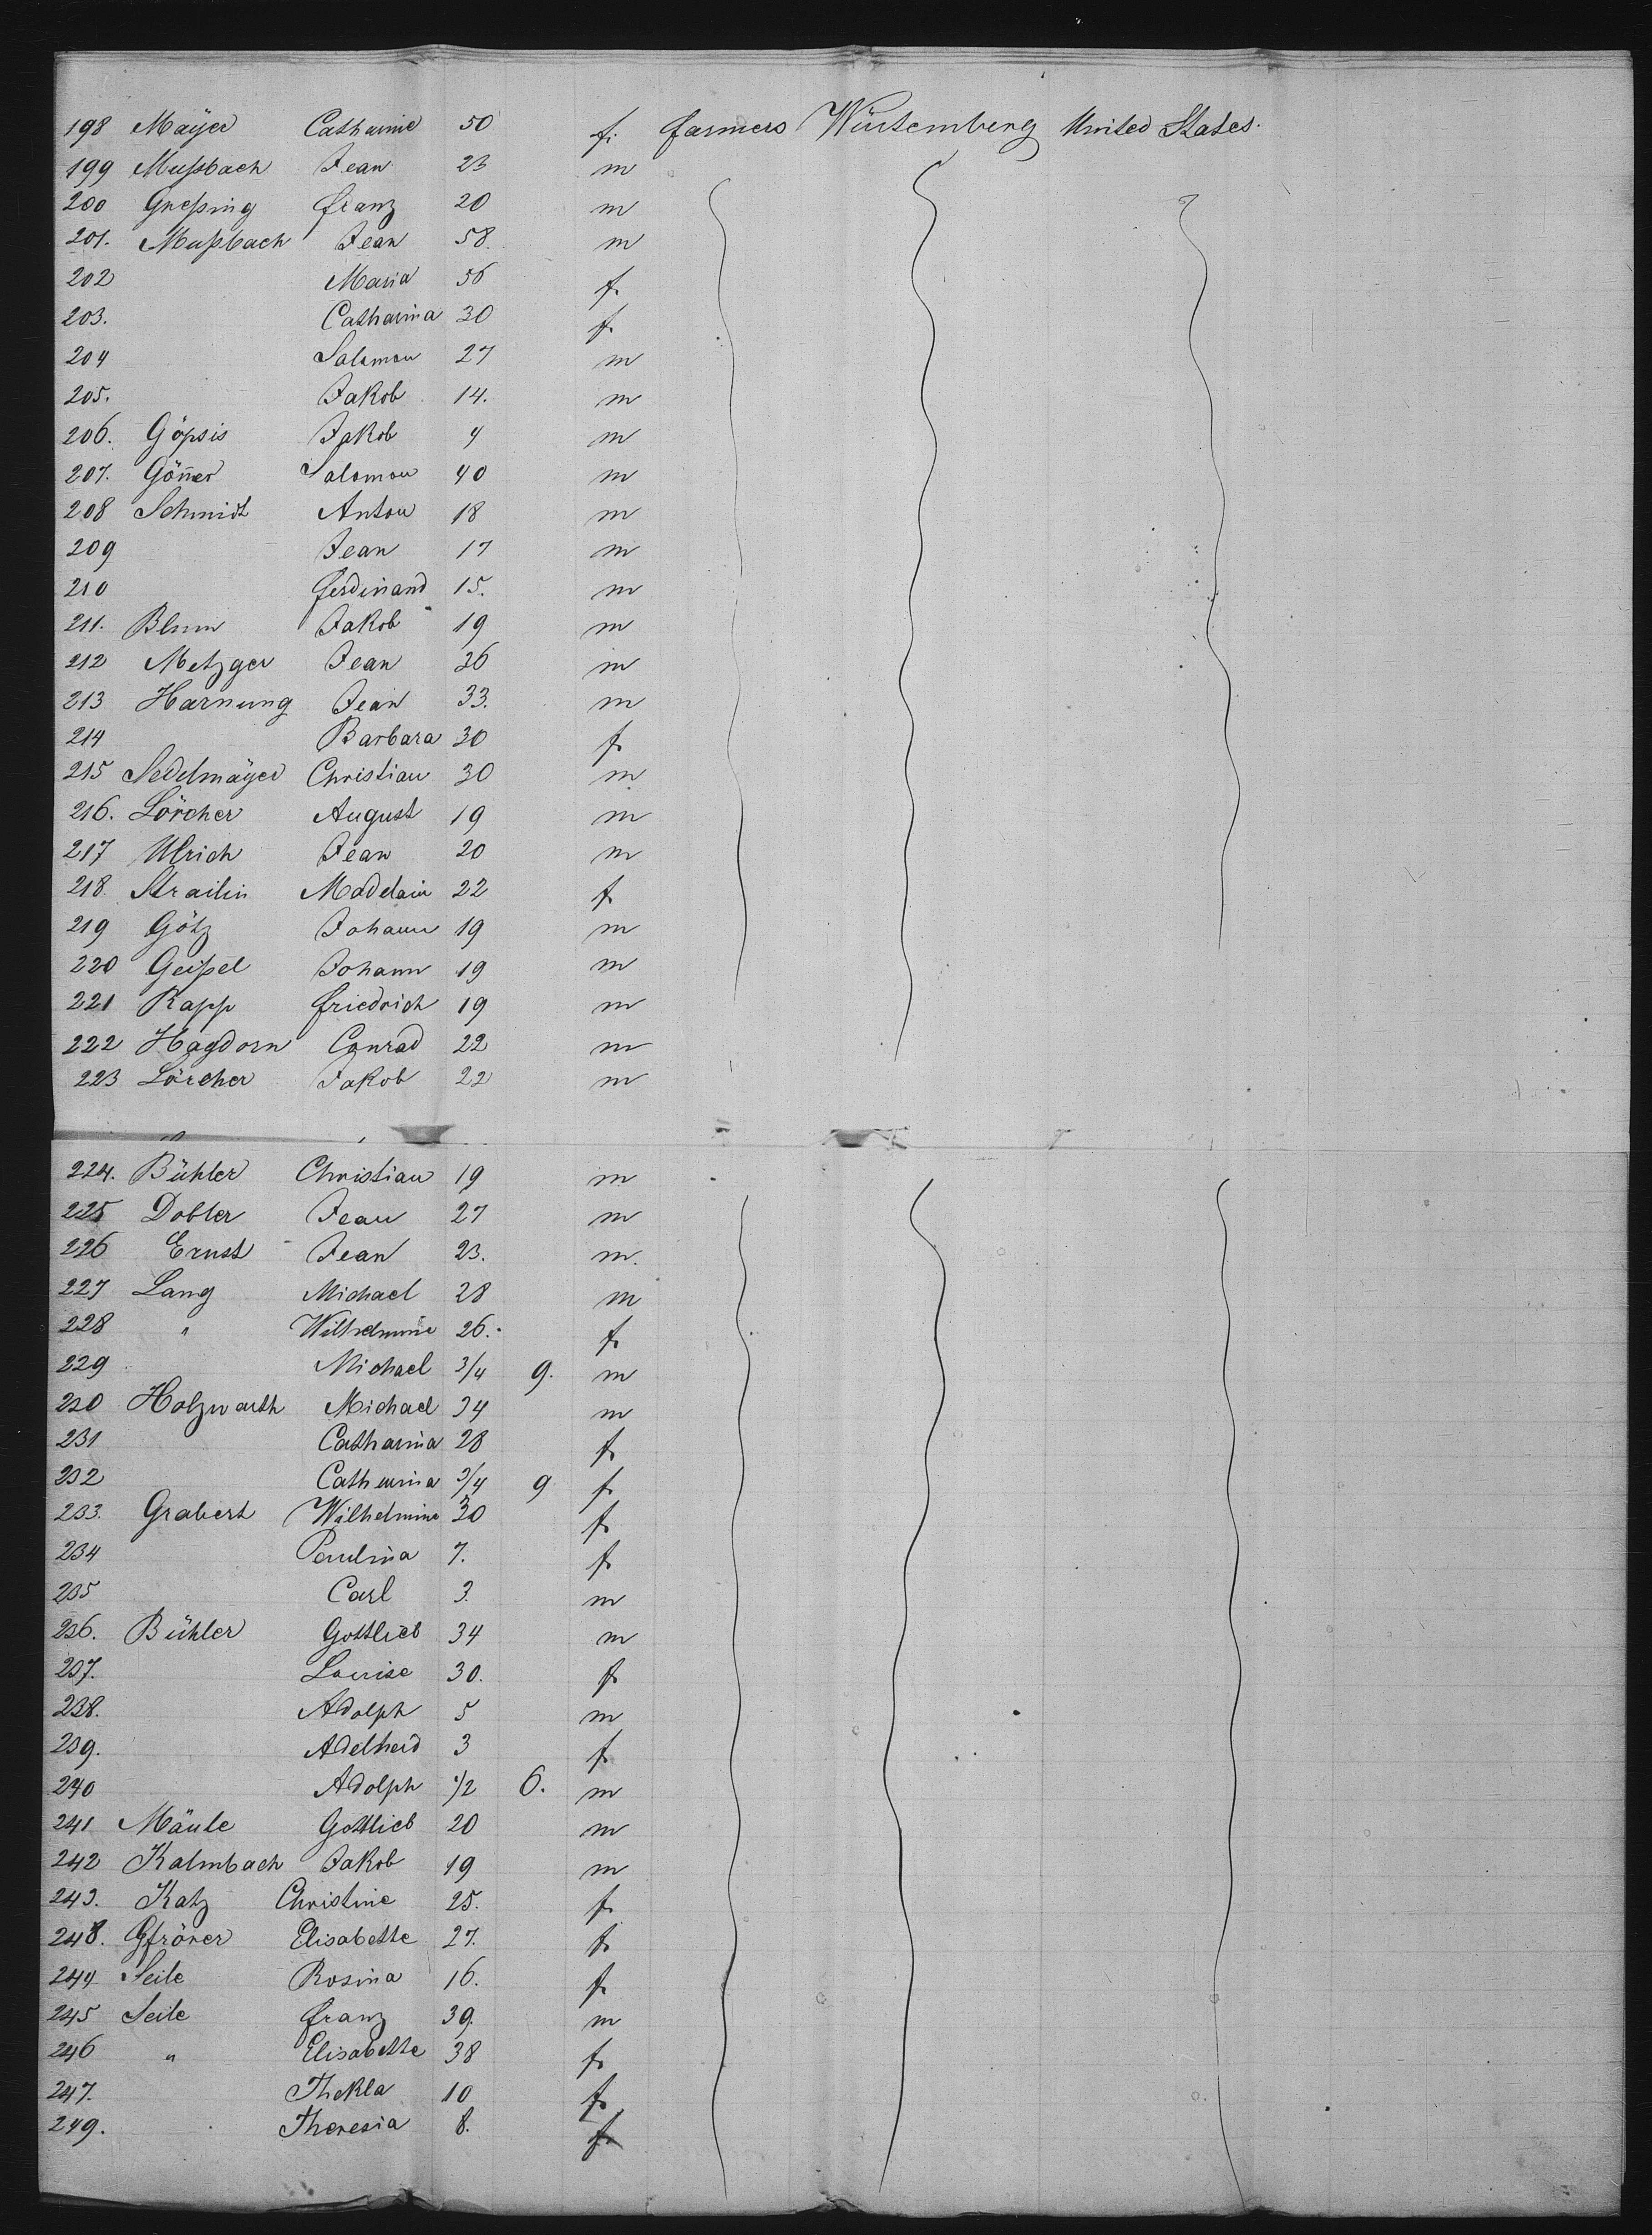 198 Mayer Catharine 50 f. farmers Würtemberg United States.
199 Mußbach Jean 23 m
200 Greßing Franz 20 m
201. Mußbach Jean 58. m
202 Maria 56 f.
203. Catharina 30 f.
204 Salamon 27 m
205. Jakob 14. m
206. Göpsis Jakob 4 m
207. Göñer Salomon 40 m
208 Schmidt Anton 18 m
209 Jean 17 m
210 Ferdinand 15. m
211. Blum Jakob 19 m
212 Metzger Jean 36 m
213 Harnung Jean 33. m
214 Barbara 30 f.
215 Sedelmäyer Christian 30 m
216. Lörcher August 19 m
217 Ulrich Jean 20 m
218. Strailin Madelain 22 f
219 Götz Johann 19 m
220 Geißel Johann 19 m
221 Rapp Friedrich 19 m
222 Hagdorn Conrad 22 m
223 Lörcher Jakob 22 m
224. Bühler Christian 19 m
225 Dobler Jean 27 m
226 Ernst Jean 23. m.
227 Lang Michael 28 m
228 " Wilhelmine 26. f.
229 Michael 3/4 9. m
230 Holzwarth Michael 34 m
231 Catharina 28 f.
232 Catharina 3/4 9 f.
233. Grabert Wilhelmine 30 f.
234 Paulina 7. f.
235 Carl 3. m
236. Bühler Gottlieb 34 m
237. Louise 30. f.
238. Adolph 5 m
239. Adelheid 3 f.
240 Adolph 1/2 6. m
241 Mäule Gottlieb 20 m
242 Kalmbach Jakob 19 m
243. Katz Christine 25. f.
248. Gfrörer Elisabette 27. f.
244 Seile Rosina 16. f.
245 Seile Franz 39. m
246 " Elisabette 38 f.
247. Thekla 10 f.
249. Theresia 8. f.